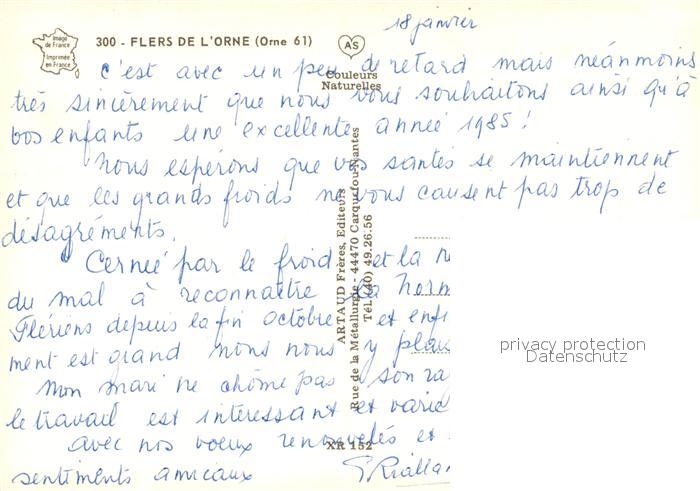 Image
de France
Imprimée
en France
300 - FLERS DE L'ORNE (Orne 61)
AS
Couleurs
Naturelles
18 janvier
c'est avec un peu de retard mais néanmoins
très sincèrement que nous vous souhaitons ainsi qu'à
vos enfants une excellente année 1985 !
Nous espérons que vos santés se maintiennent
et que les grands froids ne vous causent pas trop de
désagréments.
Cernée par le froid et la
du mal à reconnaître la Norm
Flériens depuis la fin octobre et enfi
ment est grand nous nous y plais
Mon mari ne chôme pas son ra
le travail est intéressant et varié
avec nos voeux renouvelés et
sentiments amicaux
ARTAUD Frères, Editeurs
Rue de la Métallurgie - 44470 Carquefou-Nantes
Tél. (40) 49.26.56
XR 152
privacy protection
Datenschutz